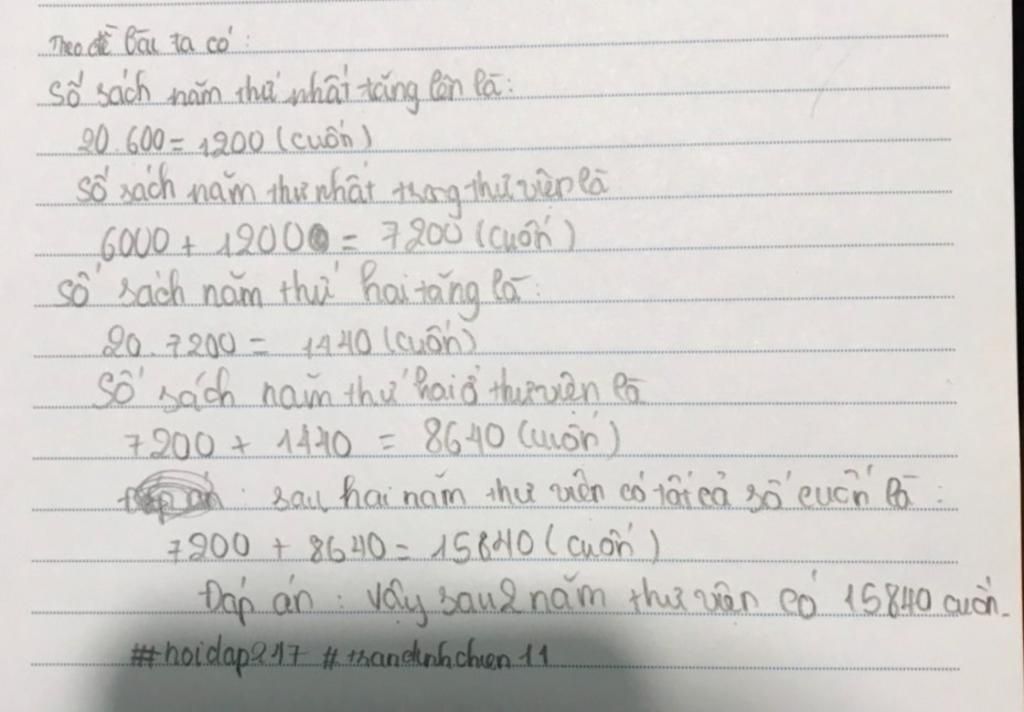 Theo đề bài ta có:
Số sách năm thứ nhất tăng lên là:
20.600 = 1200 (cuốn)
Số sách năm thứ nhất trong thư viện là
6000 + 1200 = 7200 (cuốn)
Số sách năm thứ hai tăng là:
20.7200 = 1440 (cuốn)
Số sách năm thứ hai ở thư viện là
7200 + 1440 = 8640 (cuốn)
: sau hai năm thư viện có tất cả số cuốn là:
7200 + 8640 = 15840 (cuốn)
Đáp án: Vậy sau 2 năm thư viện có 15840 cuốn.
#hoidap247 #trandinhchien11